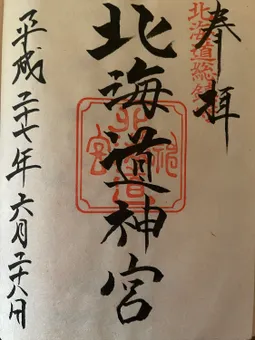 奉拝
北海道総鎮守
北海道神宮
平成二十七年六月二十八日